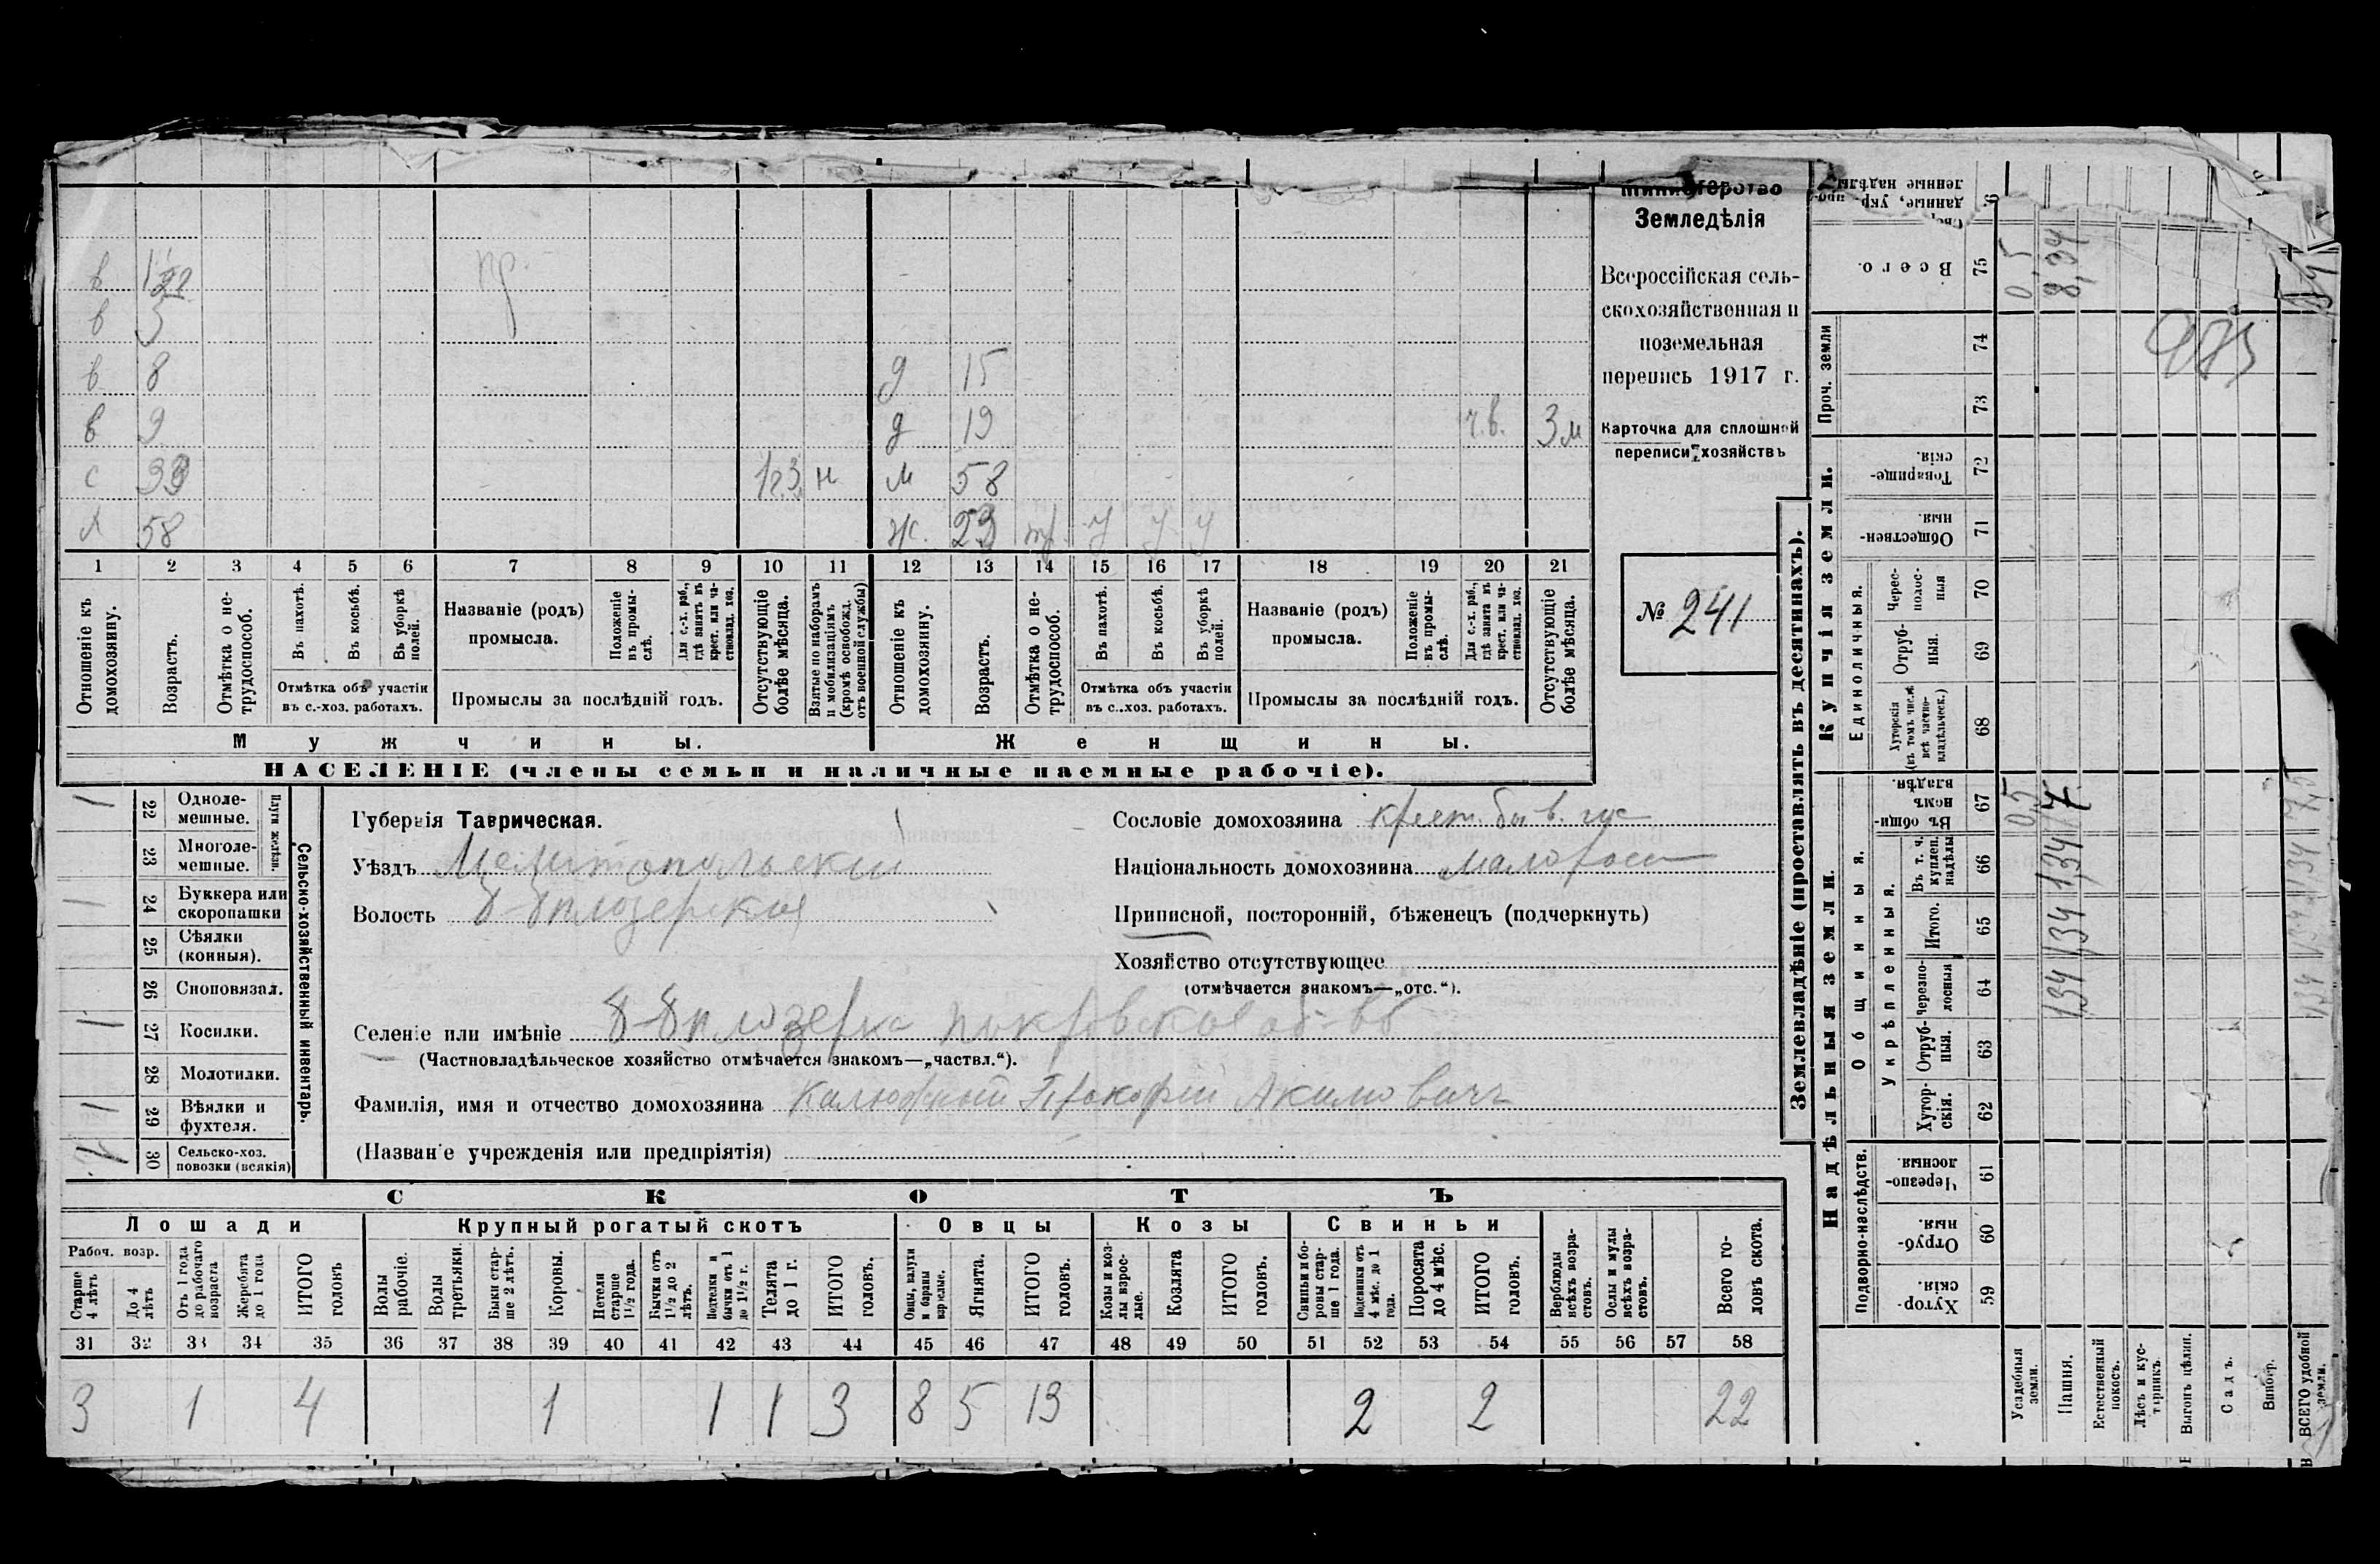 Министерство
Земледѣлія
Всероссійская сель-
скохозяйственная и
поземельная
перепись 1917 г.
Карточка для сплошной
переписи хозяйствъ
№ 241
в 1
в 3
в 8 д 15
в 9 д 19 ч.в. 3 м
с 33 н м 58
58 ж. 23 у у у
1 2 3 4 5 6 7 8 9 10 11 12 13 14 15 16 17 18 19 20 21
Отношеніе къ домохозяину.
Возрастъ.
Отмѣтка о не-трудоспособ.
Въ пахотѣ.
Въ косьбѣ.
Въ уборкѣ полей.
Отмѣтка объ участіи
въ с.-хоз. работахъ.
Названіе (родъ)
промысла.
Положеніе въ промы-слѣ.
Для с.-х. раб., гдѣ занятъ въ крест. или ча-стновлад. хоз.
Промыслы за послѣдній годъ.
Отсутствующіе болѣе мѣсяца.
Взятые по наборамъ и мобилизаціямъ (кромѣ освобожд. отъ военной службы)
Отношеніе къ домохозяину.
Возрастъ.
Отмѣтка о не-трудоспособ.
Въ пахотѣ.
Въ косьбѣ.
Въ уборкѣ полей.
Отмѣтка объ участіи
въ с.-хоз. работахъ.
Названіе (родъ)
промысла.
Положеніе въ промы-слѣ.
Для с.-х. раб., гдѣ занята въ крест. или ча-стновлад. хоз.
Промыслы за послѣдній годъ.
Отсутствующіе болѣе мѣсяца.
Мужчины.
Женщины.
НАСЕЛЕНІЕ (члены семьи и наличные наемные рабочіе).
Сельско-хозяйственный инвентарь.
Плуги желѣзн.
1 22 Одноле-мешные.
23 Многоле-мешные.
1 24 Буккера или скоропашки
25 Сѣялки (конныя).
26 Сноповязал.
1 27 Косилки.
28 Молотилки.
1 29 Вѣялки и фухтеля.
30 Сельско-хоз. повозки (всякія)
Губернія Таврическая.
Уѣздъ Мелитопольскій
Волость Б-Бѣлозерская
Сословіе домохозяина крест. быв. гос
Національность домохозяина малоросс
Приписной, посторонній, бѣженецъ (подчеркнуть)
Хозяйство отсутствующее
(отмѣчается знакомъ—„отс.“).
Селеніе или имѣніе Б-Бѣлозерка Покровское об-во
(Частновладѣльческое хозяйство отмѣчается знакомъ—„частвл.“).
Фамилія, имя и отчество домохозяина Калюжный Прокофій Акимовичъ
(Названіе учрежденія или предпріятія)
СКОТЪ
Лошади
Крупный рогатый скотъ
Овцы
Козы
Свиньи
Рабоч. возр.
Старше 4 лѣтъ
До 4 лѣтъ
Отъ 1 года до рабочаго возраста
Жеребята до 1 года
ИТОГО головъ
Волы рабочіе.
Волы третьяки.
Быки стар-ше 2 лѣтъ.
Коровы.
Нетели старше 1½ года.
Бычки отъ 1½ до 2 лѣтъ.
Подтелки и бычки отъ 1 до 1½ г.
Телята до 1 г.
ИТОГО головъ.
Овцы, валухи и бараны взрослые.
Ягнята.
ИТОГО головъ.
Козы и коз-лы взрос-лые.
Козлята
ИТОГО головъ.
Свиньи и бо-ровы стар-ше 1 года.
Подсвинки отъ 4 мѣс. до 1 года.
Поросята до 4 мѣс.
ИТОГО головъ.
Верблюды всѣхъ возра-стовъ.
Ослы и мулы всѣхъ возра-стовъ.
Всего го-ловъ скота.
31 32 33 34 35 36 37 38 39 40 41 42 43 44 45 46 47 48 49 50 51 52 53 54 55 56 57 58
3 1 4 1 1 1 3 8 5 13 2 2 22
Землевладѣніе (проставлять въ десятинахъ).
Надѣльныя земли.
Купчія земли.
Проч. земли
Подворно-наслѣдств.
Общинныя.
Укрѣпленныя.
Единоличныя.
Хутор-скія. 59
Отруб-ныя. 60
Черезпо-лосныя. 61
Хутор-скія. 62
Отруб-ныя. 63
черезпо-лосныя 64
Итого. 65
Въ т. ч. куплен. надѣлы 66
Въ общи-номъ владѣн. 67
Хуторскія (въ томъ числѣ всѣ частно-владѣльческ.) 68
Отруб-ныя. 69
Черес-полос-ныя 70
Обществен-ныя. 71
Товарище-скія. 72
73
74
Всего. 75
Усадебныя земли. 0,5 0,5
Пашня. 1,34 1,34 1,34 7 8,34
Естественный покосъ.
Лѣсъ и кус-тарникъ.
Выгонъ цѣлин.
Садъ.
Виногр.
ВСЕГО удобной земли. 1,34 1,34 1,34 7,5